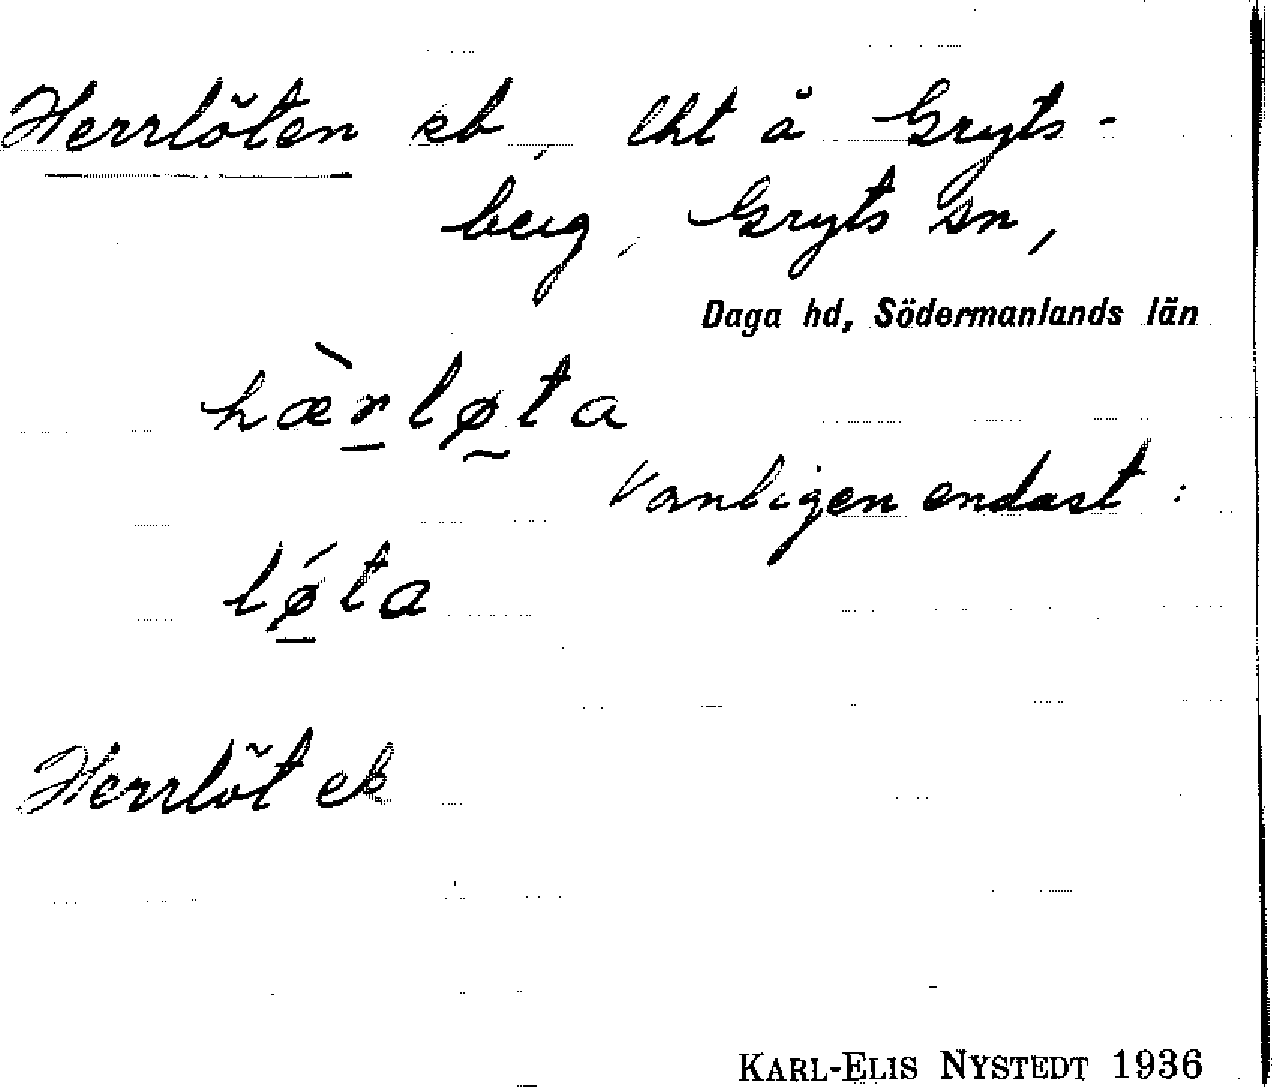 Herrlöten eb, lht å Gryts-
berg, Gryts sn,
Daga hd, Södermanlands län
hæ̀rløta
Vanligen endast:
lǿta
Herrlöt ek
KARL-ELIS NYSTEDT 1936